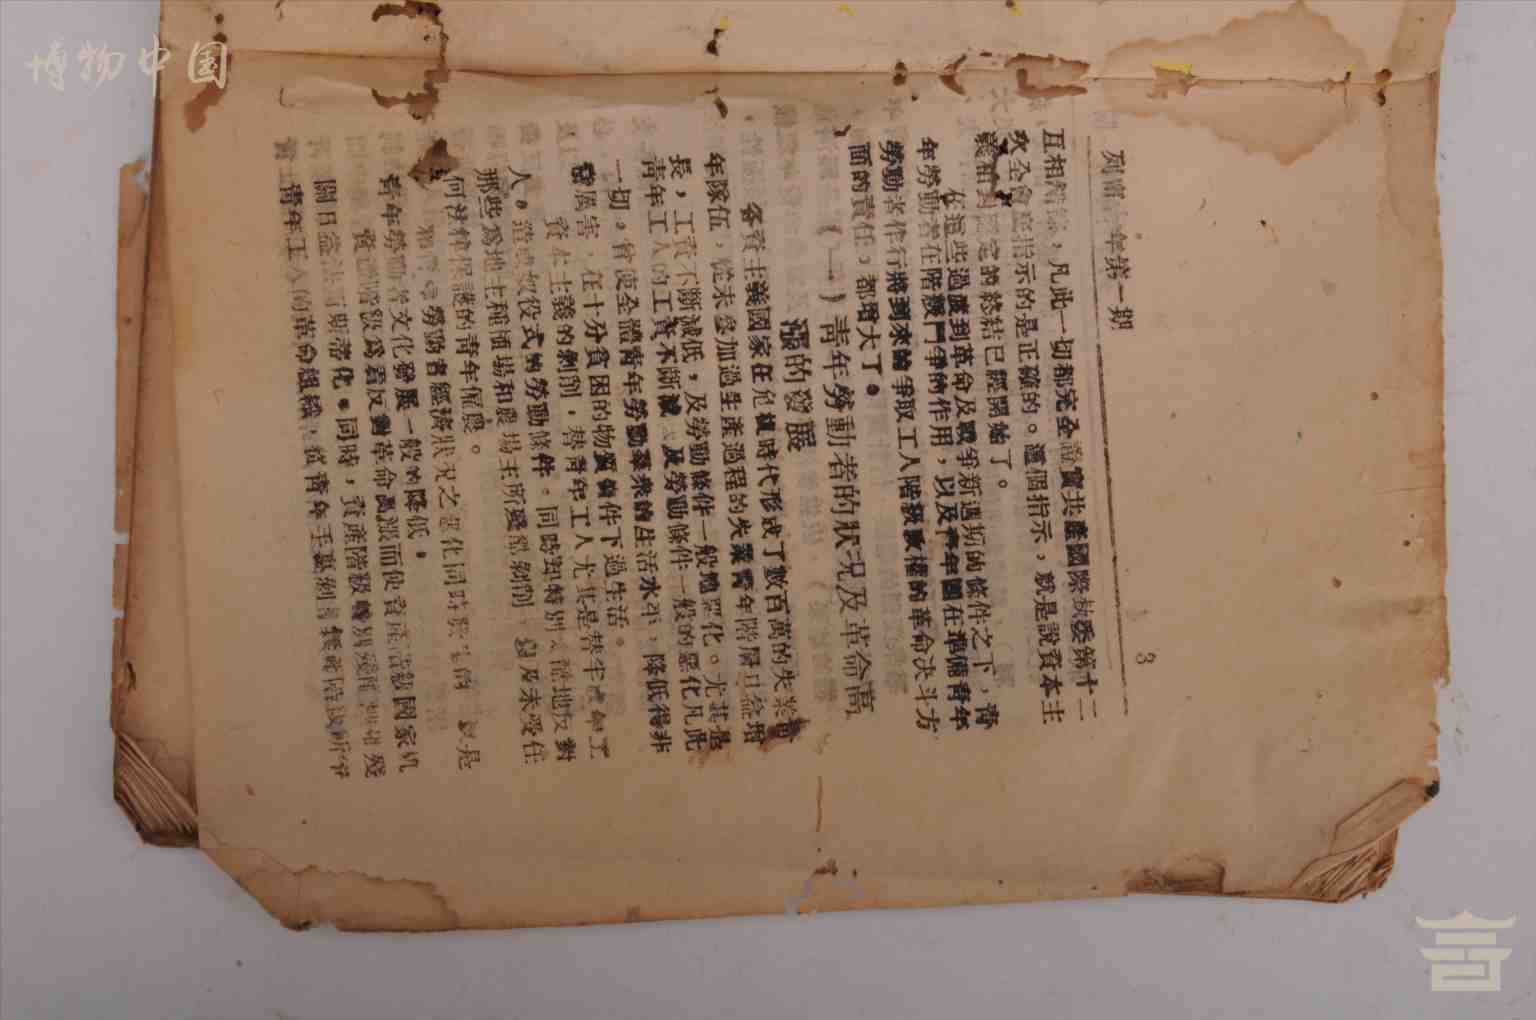 博物中国
3
年第一期
互相 ,凡此一切都完全證實共產國際執委第十二
次全會 指示的是正確的。這個指示,就是說資本主
義相對 定的終結已經開始了。
在這些過渡到革命及戰爭新週期的條件之下,青
年勞動者在階級鬥爭的作用,以及青年團在準備青年
勞動者作行將到來的爭取工人階級政權的革命決斗方
面的責任,都增大了。
(一)青年勞動者的狀況及革命高
漲的發展
各資主義國家在危機時代形成了數百萬的失業青
年隊伍,從未參加過生產過程的失業青年階層日益增
長,工資不斷減低,及勞動條件一般地惡化。尤其是
青年工人的工資不斷減 及勞動條件一般的惡化凡此
一切,曾使全體青年勞動羣衆的生活水平,降低得非
常厲害,在十分貧困的物質條件下過生活。
資本主義的剝削,替青年工人尤其是替半 年工
人,造成奴役式的勞動條件。同時却特別 酷地反對
那些爲地主種植場和農場主所殘酷剝削,以及未受任
何法律保護的青年僱農。
勞動者經濟狀況之惡化同時 是
青年勞動者文化發展一般的降低。
資產階級爲着反對革命高漲而使資產階級國家机
關日益法西斯蒂化。同時,資產階級特別殘酷 殘
青年工人的革命組織